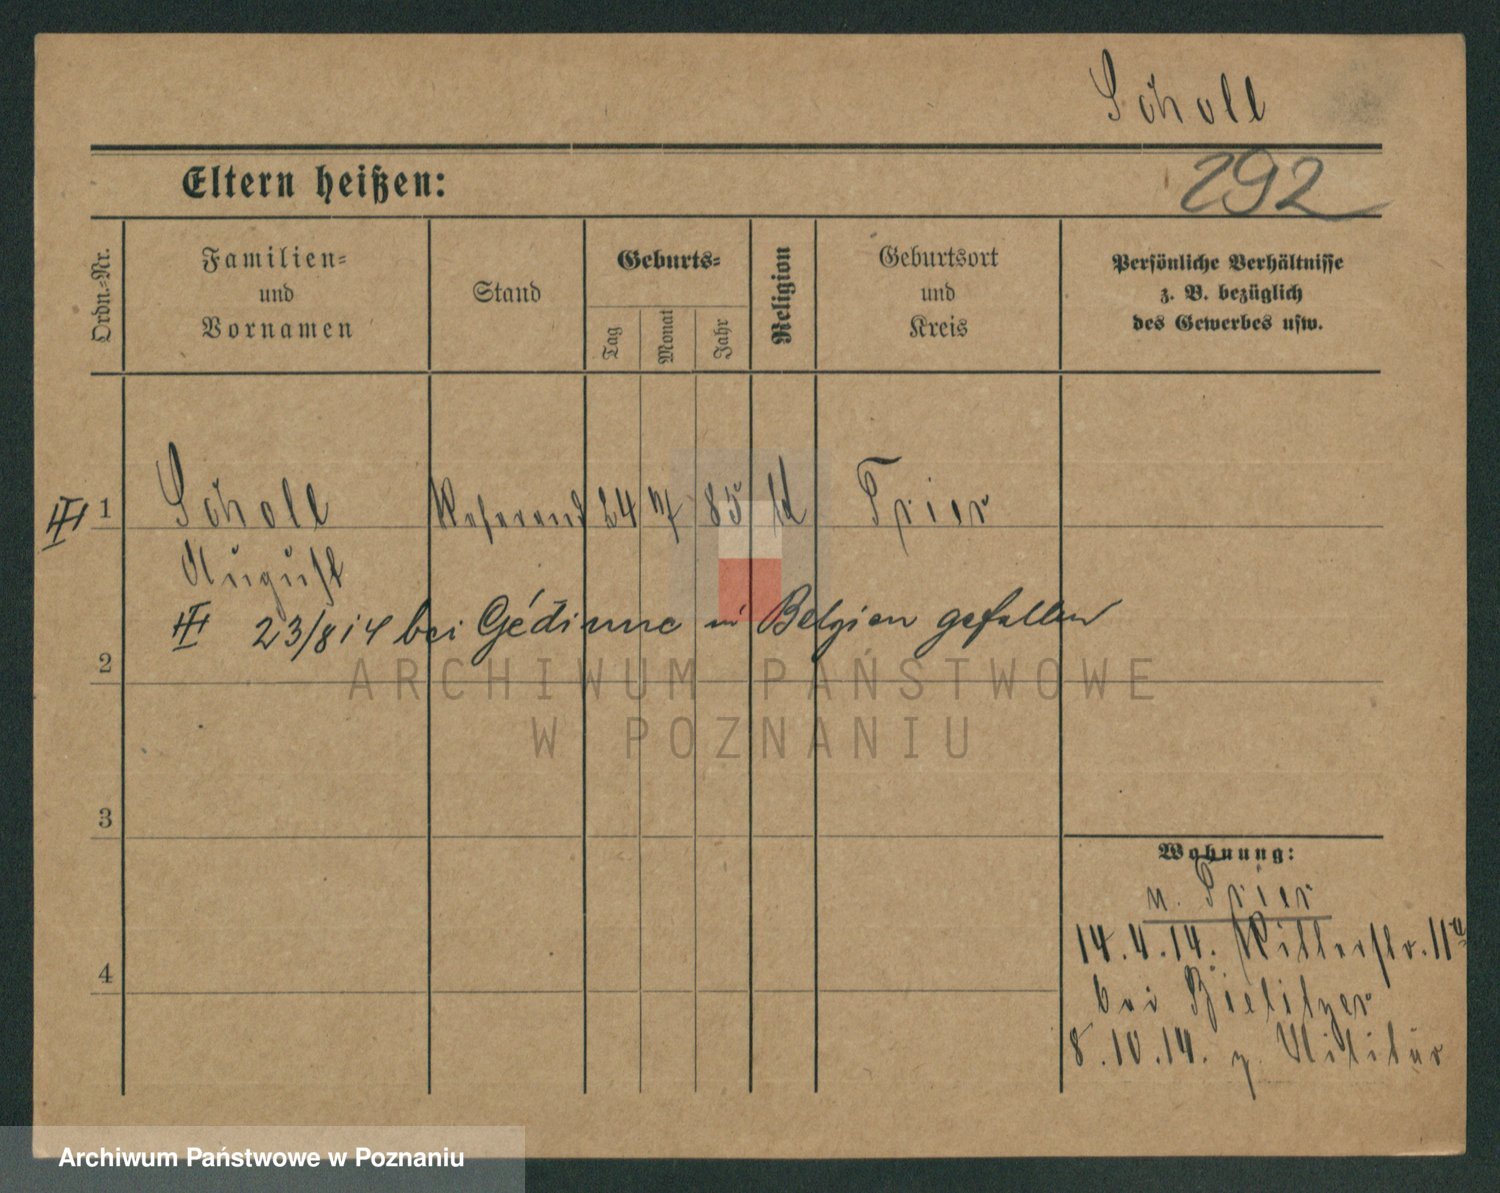 Scholl
Eltern heißen:
292
Ordn.-Nr.
Familien-
und
Vornamen
Stand
Geburts-
Tag
Monat
Jahr
Religion
Geburtsort
und
Kreis
Persönliche Verhältnisse
z. B. bezüglich
des Gewerbes usw.
III 1 Scholl Referend 24 85 Trier
August
III 23/8 14 bei Gédinne in Belgien gefallen
2
ARCHIWUM PAŃSTWOWE
W POZNANIU
3
Wohnung:
n. Trier
4
14.4.14. Ritterstr. 11a
bei Bielitzer
8.10.14. z. Militär
Archiwum Państwowe w Poznaniu